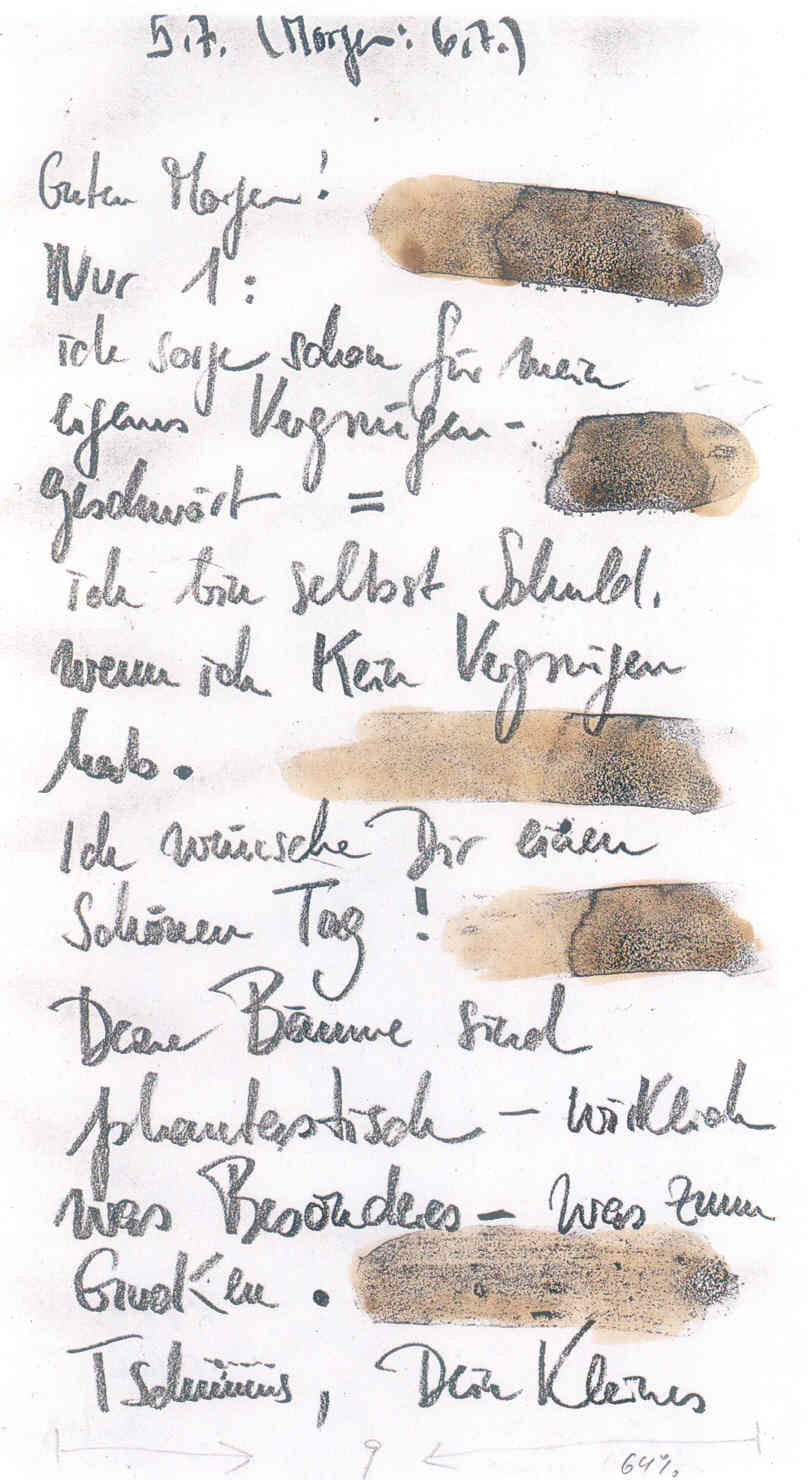 5.7. (Morgen: 6.7.)
Guten Morgen!
Nur 1:
ich sorge schon für mein
eigenes Vergnügen-
geschwört =
ich bin selbst Schuld,
wenn ich kein Vergnügen
hab.
Ich wünsche Dir einen
schönen Tag!
Deine Bäume sind
phantastisch - wirklich
was Besonderes - was zum
Gucken.
Tschüüüs, Dein Kleines
9
64%